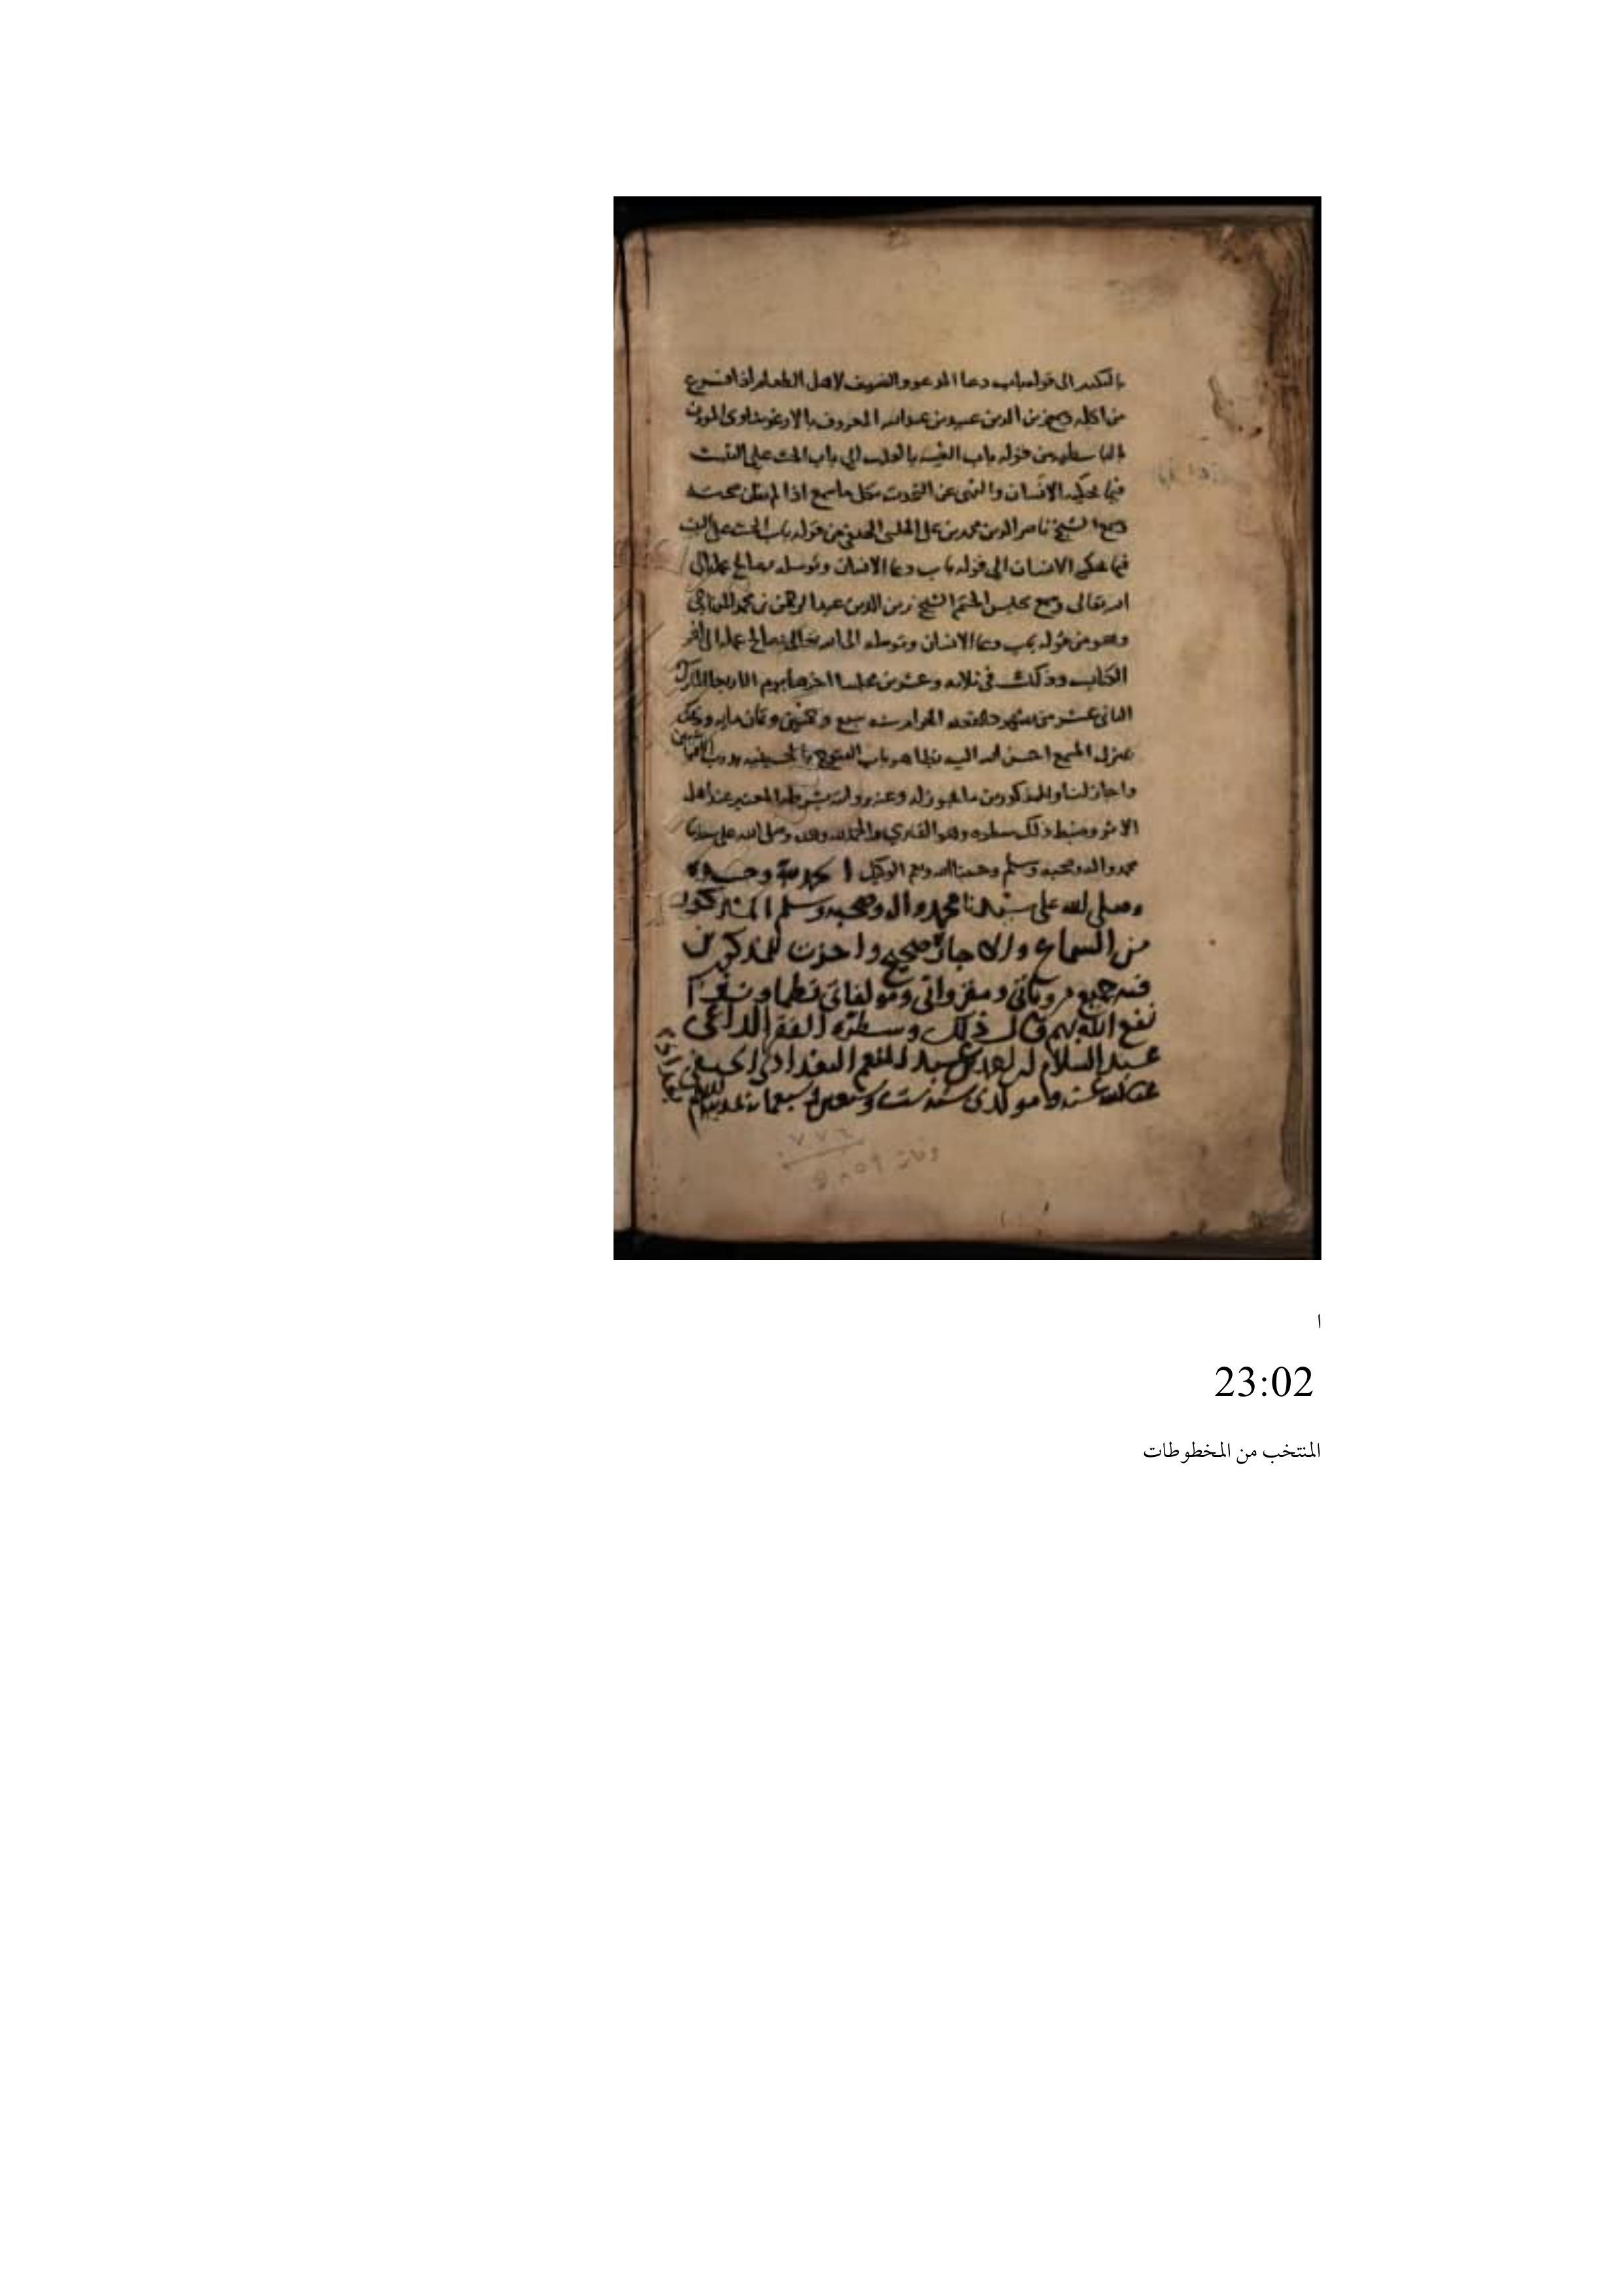 بالتكبير الى قوله باب دعا المدعو والضيف لاهل الطعام اذا فرغ
من اكله وسمع زين الدين عبيد بن عبد الله المعروف بالمؤذن
من قوله باب الغيبة بالقلب الى باب الحث على التثبت
فيما يحكيه الانسان والنهى عن التحدث بكل ما سمع اذا لم يظن صحته
وسمع الشيخ ناصر الدين محمد بن على الحلبى الحنفى من قوله باب الحث على التثبت
فيما يحكيه الانسان الى قوله باب دعا الانسان وتوسله بصالح عمله الى
الله تعالى وسمع مجلس الختم الشيخ زين الدين عبد الرحمن بن محمد
وهو من قوله باب دعا الانسان وتوسله الى الله تعالى بصالح عمله الى اخر
الكتاب وذلك فى ثلاثة وعشرين مجلسا اخرها يوم الاربعا المبارك
الثانى عشر من شهر ذى القعدة الحرام سنة سبع وخمسين وثمان مايه وذلك
بمنزل المسمع احسن الله اليه بظاهر باب الفتوح بالحسينيه
واجاز لنا وللمذكورين ما يجوز له وعنه روايته بشرطه المعتبر عند اهل
الاثر وضبط ذلك سطره وهو القاري والحمد لله وحده وصلى الله على سيدنا
محمد واله وصحبه وسلم وحسبنا الله ونعم الوكيل الحمد لله وحده
وصلى الله على سيدنا محمد واله وصحبه وسلم المذكور
من السماع والاجازة صحيح واجزت للمذكورين
فيه جميع مروياتى ومقرواتى ومولفاتى نظما ونثرا
نفع الله بهم قال ذلك وسطره الفقير الداعى
عبد السلام بن احمد بن عبد المنعم البغدادى الحنفى
عفا الله عنه ومولدى سنة ست وسبعين وسبعمائة
٧٧٦
وفاته ٨٥٩
ا
23:02
المنتخب من المخطوطات